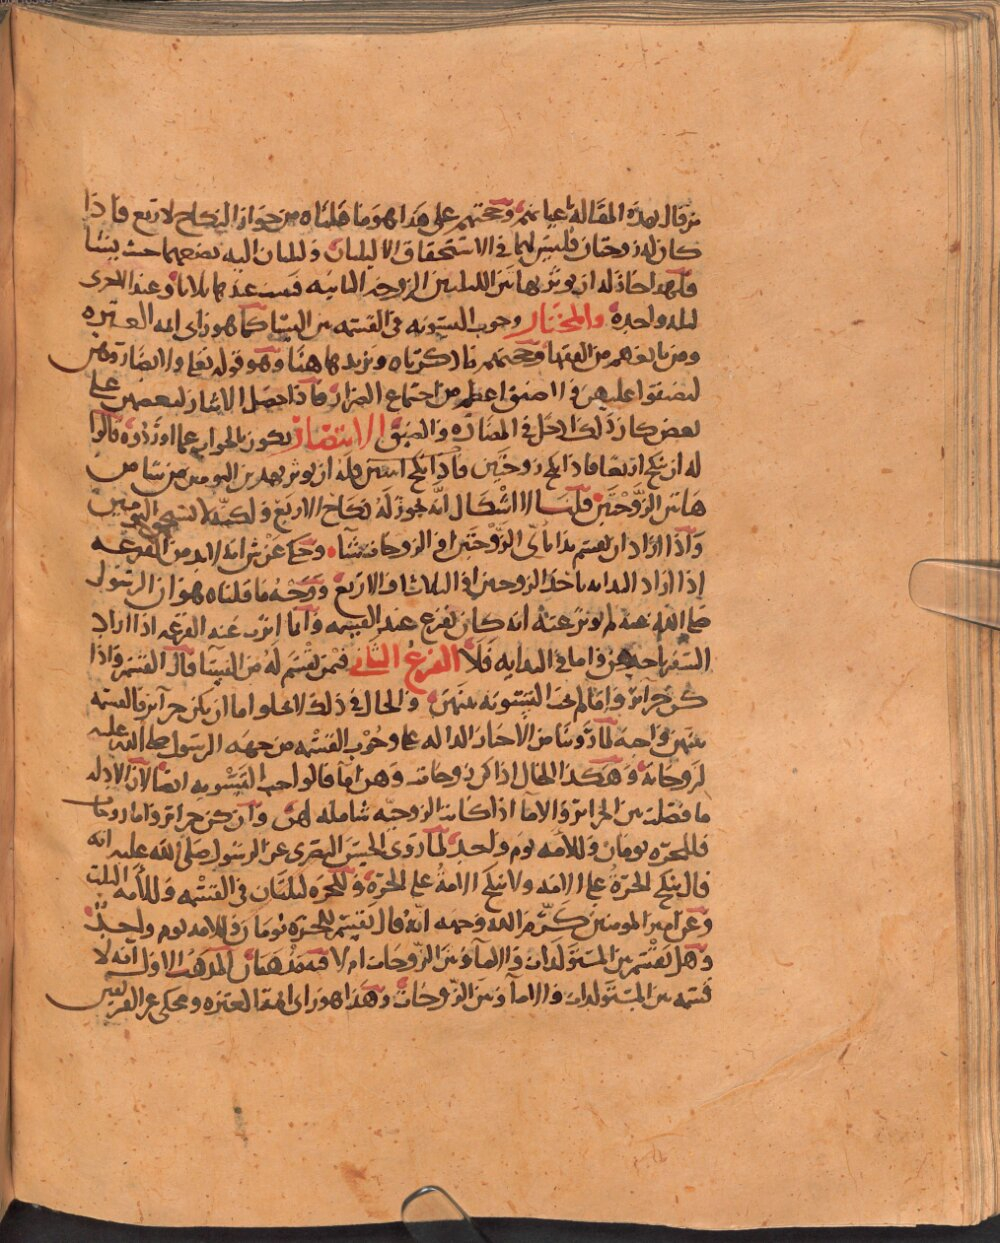 من قال بهذه المقالة باعيانهم وحجتهم على هذا هو ما قلناه من جواز النكاح لاربع فاذا
كان له زوجتان فليس لهما في الاستحقاق الا ليلتان وليلتان اليه يضعهما حيث يشا
فلهذا جاز له ان يوثر بهاتين الليلتين الزوجة الثانيه فيبيت عندها ثلاثا وعند الاخرى
ليله واحدة والمختار وجوب التسويه في القسمه بين النسا كما هو راى ايمه العتره
ومن تابعهم من الفقها وحجتهم ما ذكرناه ونزيد هاهنا وهو قوله تعالى ولا تضاروهن
لتضيقوا عليهن ولا ضيق اعظم من اجتماع الضراير فاذا حصل الايثار لبعضهن على
بعض كان ذلك ادخل في المضاره والضيق الانتصار يكون بالجواب عما اوردوه قالوا
له ان ينكح اربعا فاذا نكح زوجتين فاذا نكح اثنتين فله ان يوثر بهذين اليومين من شا من
هاتين الزوجتين قلنا لا اشكال انه يجوز له نكاح الاربع ولكنه لا يستحق اليومين
واذا اراد ان يقسم بدا باى الزوجتين او الزوجات شا وحكى عن ش انه لا بد من القرعه
اذا اراد البدايه باحدى الزوجتين او الثلاث او الاربع ووجه ما قلناه هو ان الرسول
صلى الله عليه لم يوثر عنه انه كان يقرع عند القسمه وانما اثرت عنه القرعه اذا اراد
السفر باحديهن واما في البدايه فلا الفرع الثاني فيمن يقسم له من النسا قال القسم واذا
كن حراير واما لم تجب التسويه بينهن والحال في ذلك لا يخلو اما ان يكن حراير فالقسمه
بينهن واجبه لما روينا من الاخبار الداله على وجوب القسمه من جهه الرسول صلى الله عليه
لزوجاته وهكذا الحال اذا كن زوجات وهن اما فالواجب التسويه ايضا لان الادله
ما فصلت بين الحراير والاما اذا كانت الزوجيه شامله لهن وان كن حراير واما زوجات
فللحره يومان وللامه يوم واحد لما روى الحسن البصرى عن الرسول صلى الله عليه انه
قال ينكح الحرة على الامه ولا ينكح الامة على الحرة وللحره ليلتان في القسمه وللامه الثلث
وعن امير المومنين كرم الله وجهه انه قال يقسم للحرة يومان وللامه يوم واحد
وهل يقسم بين المستولدات والاما وبين الزوجات ام لا فيه مذهبان المذهب الاول انه لا
قسمه بين المستولدات والاما وبين الزوجات وهذا هو راى ايمة العتره ومحكى عن الفريقين